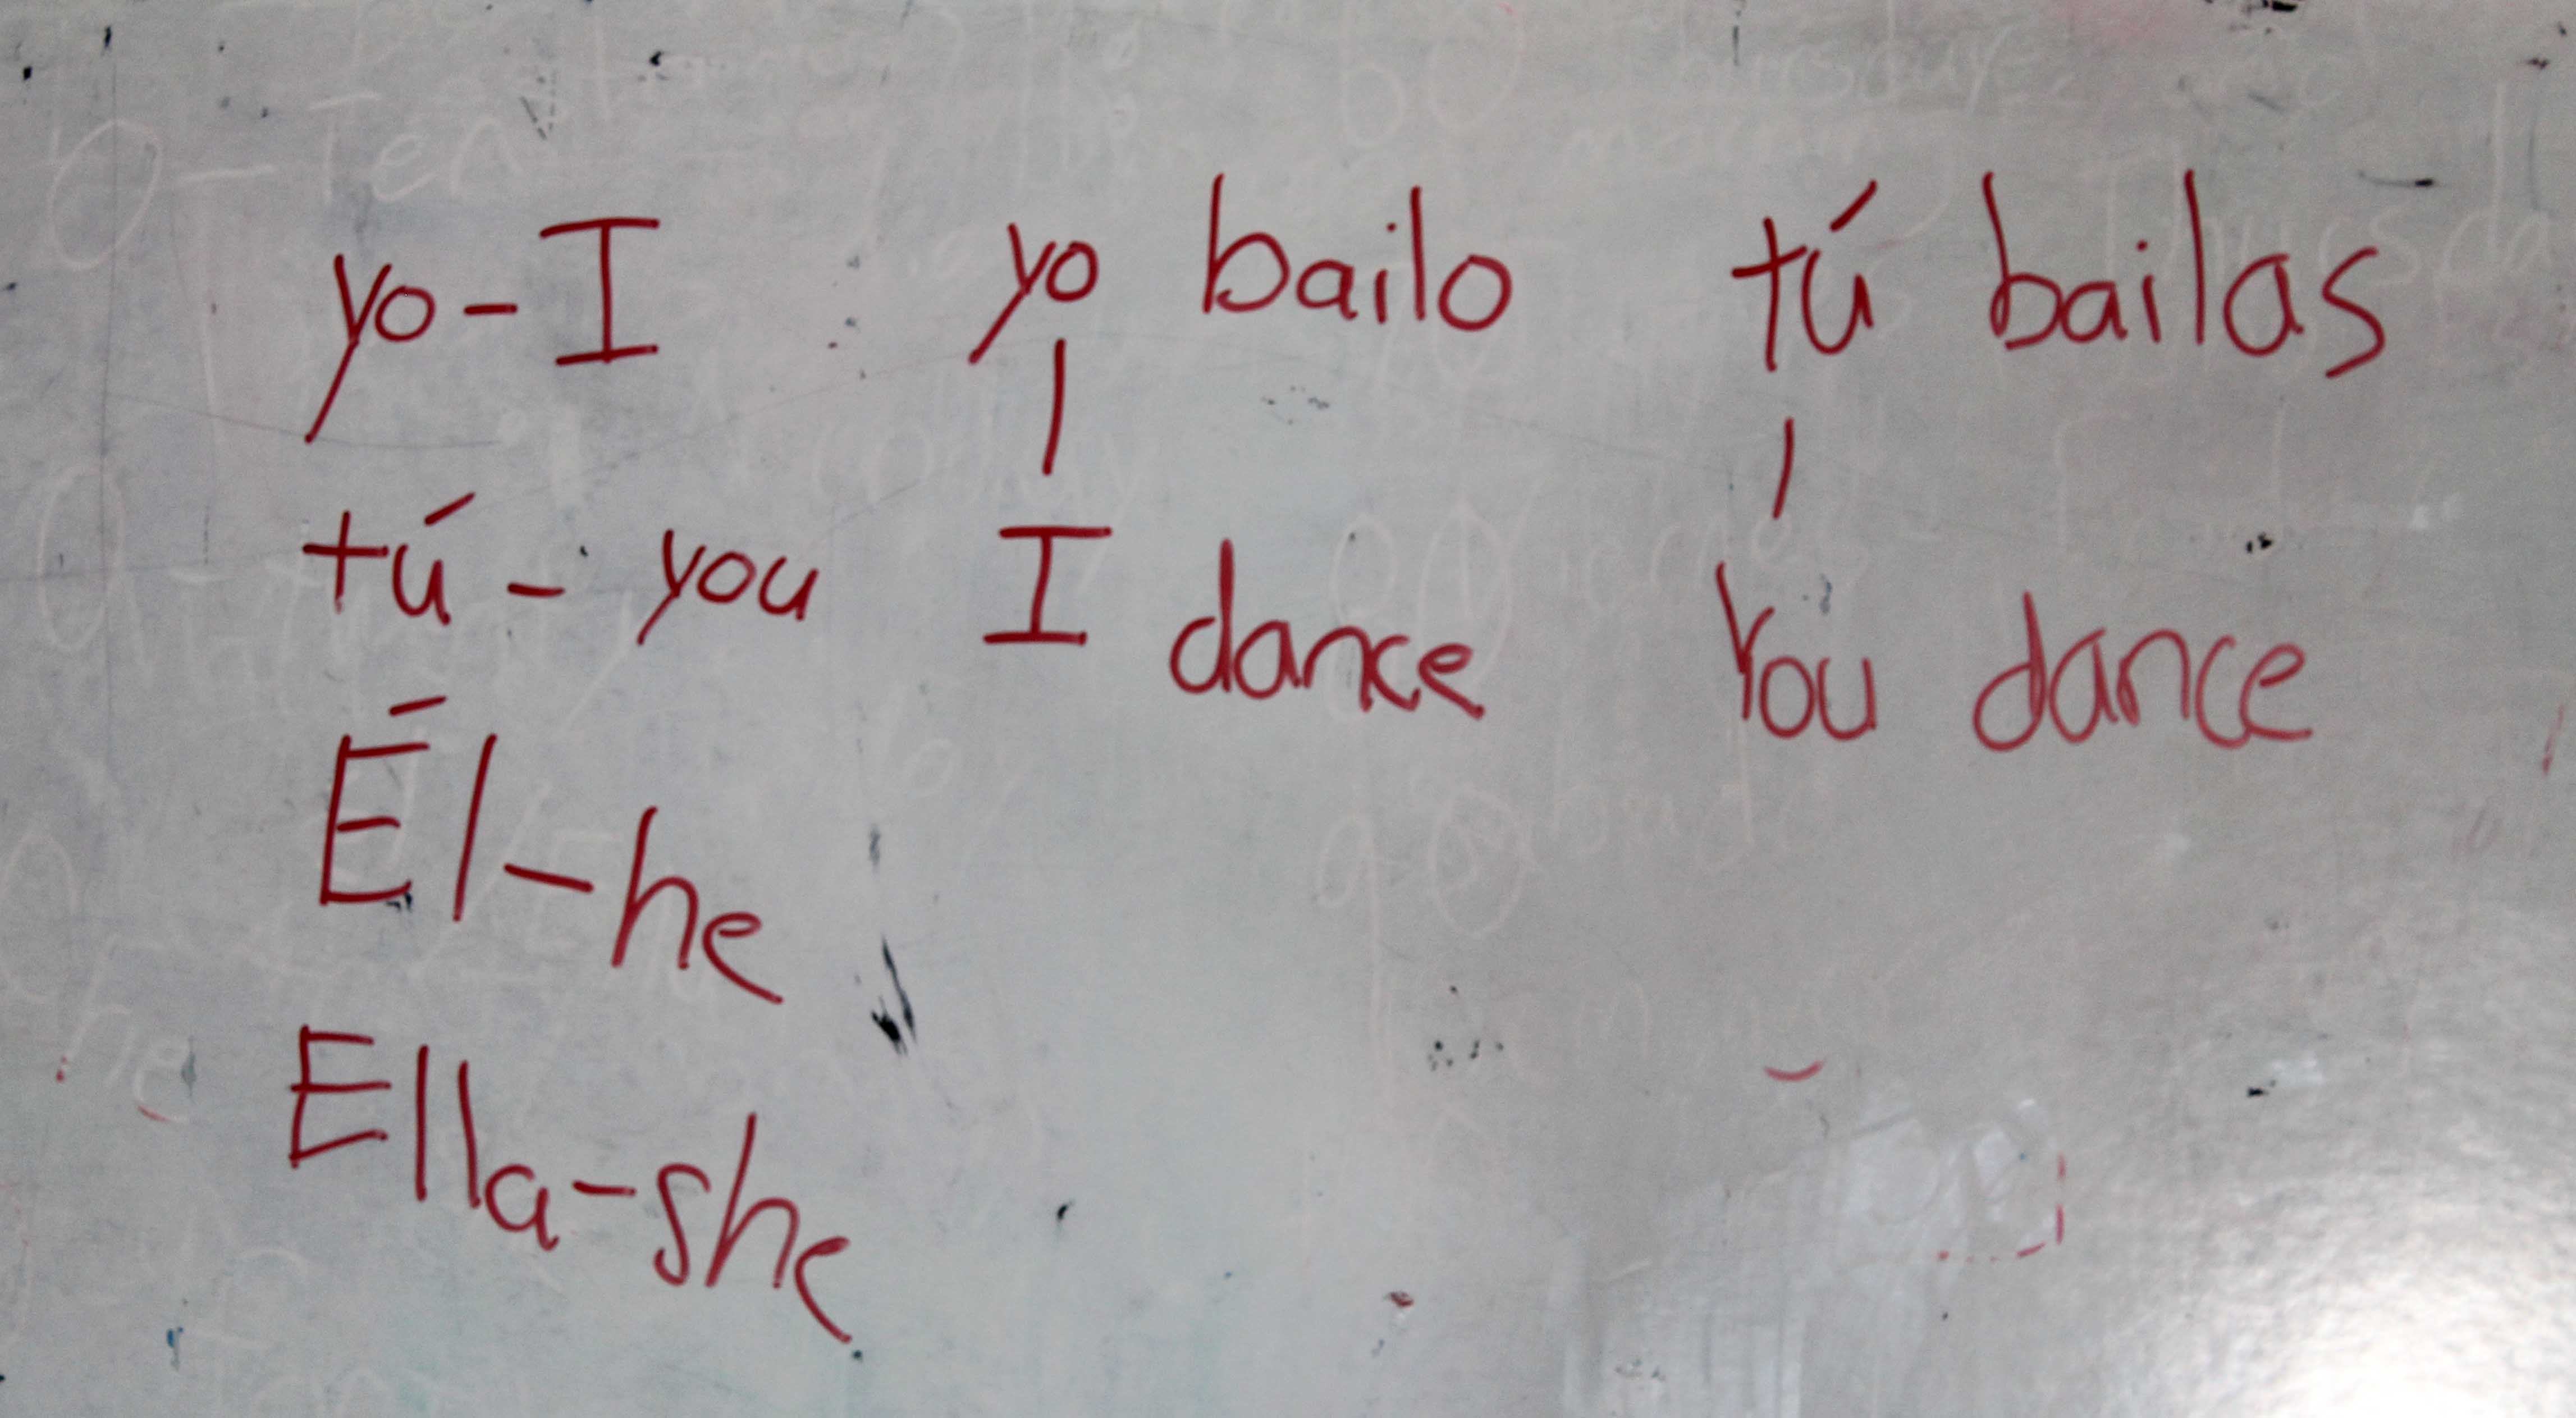 yo - I
tú - you
Él - he
Ella - she
yo bailo
I dance
tú bailas
You dance